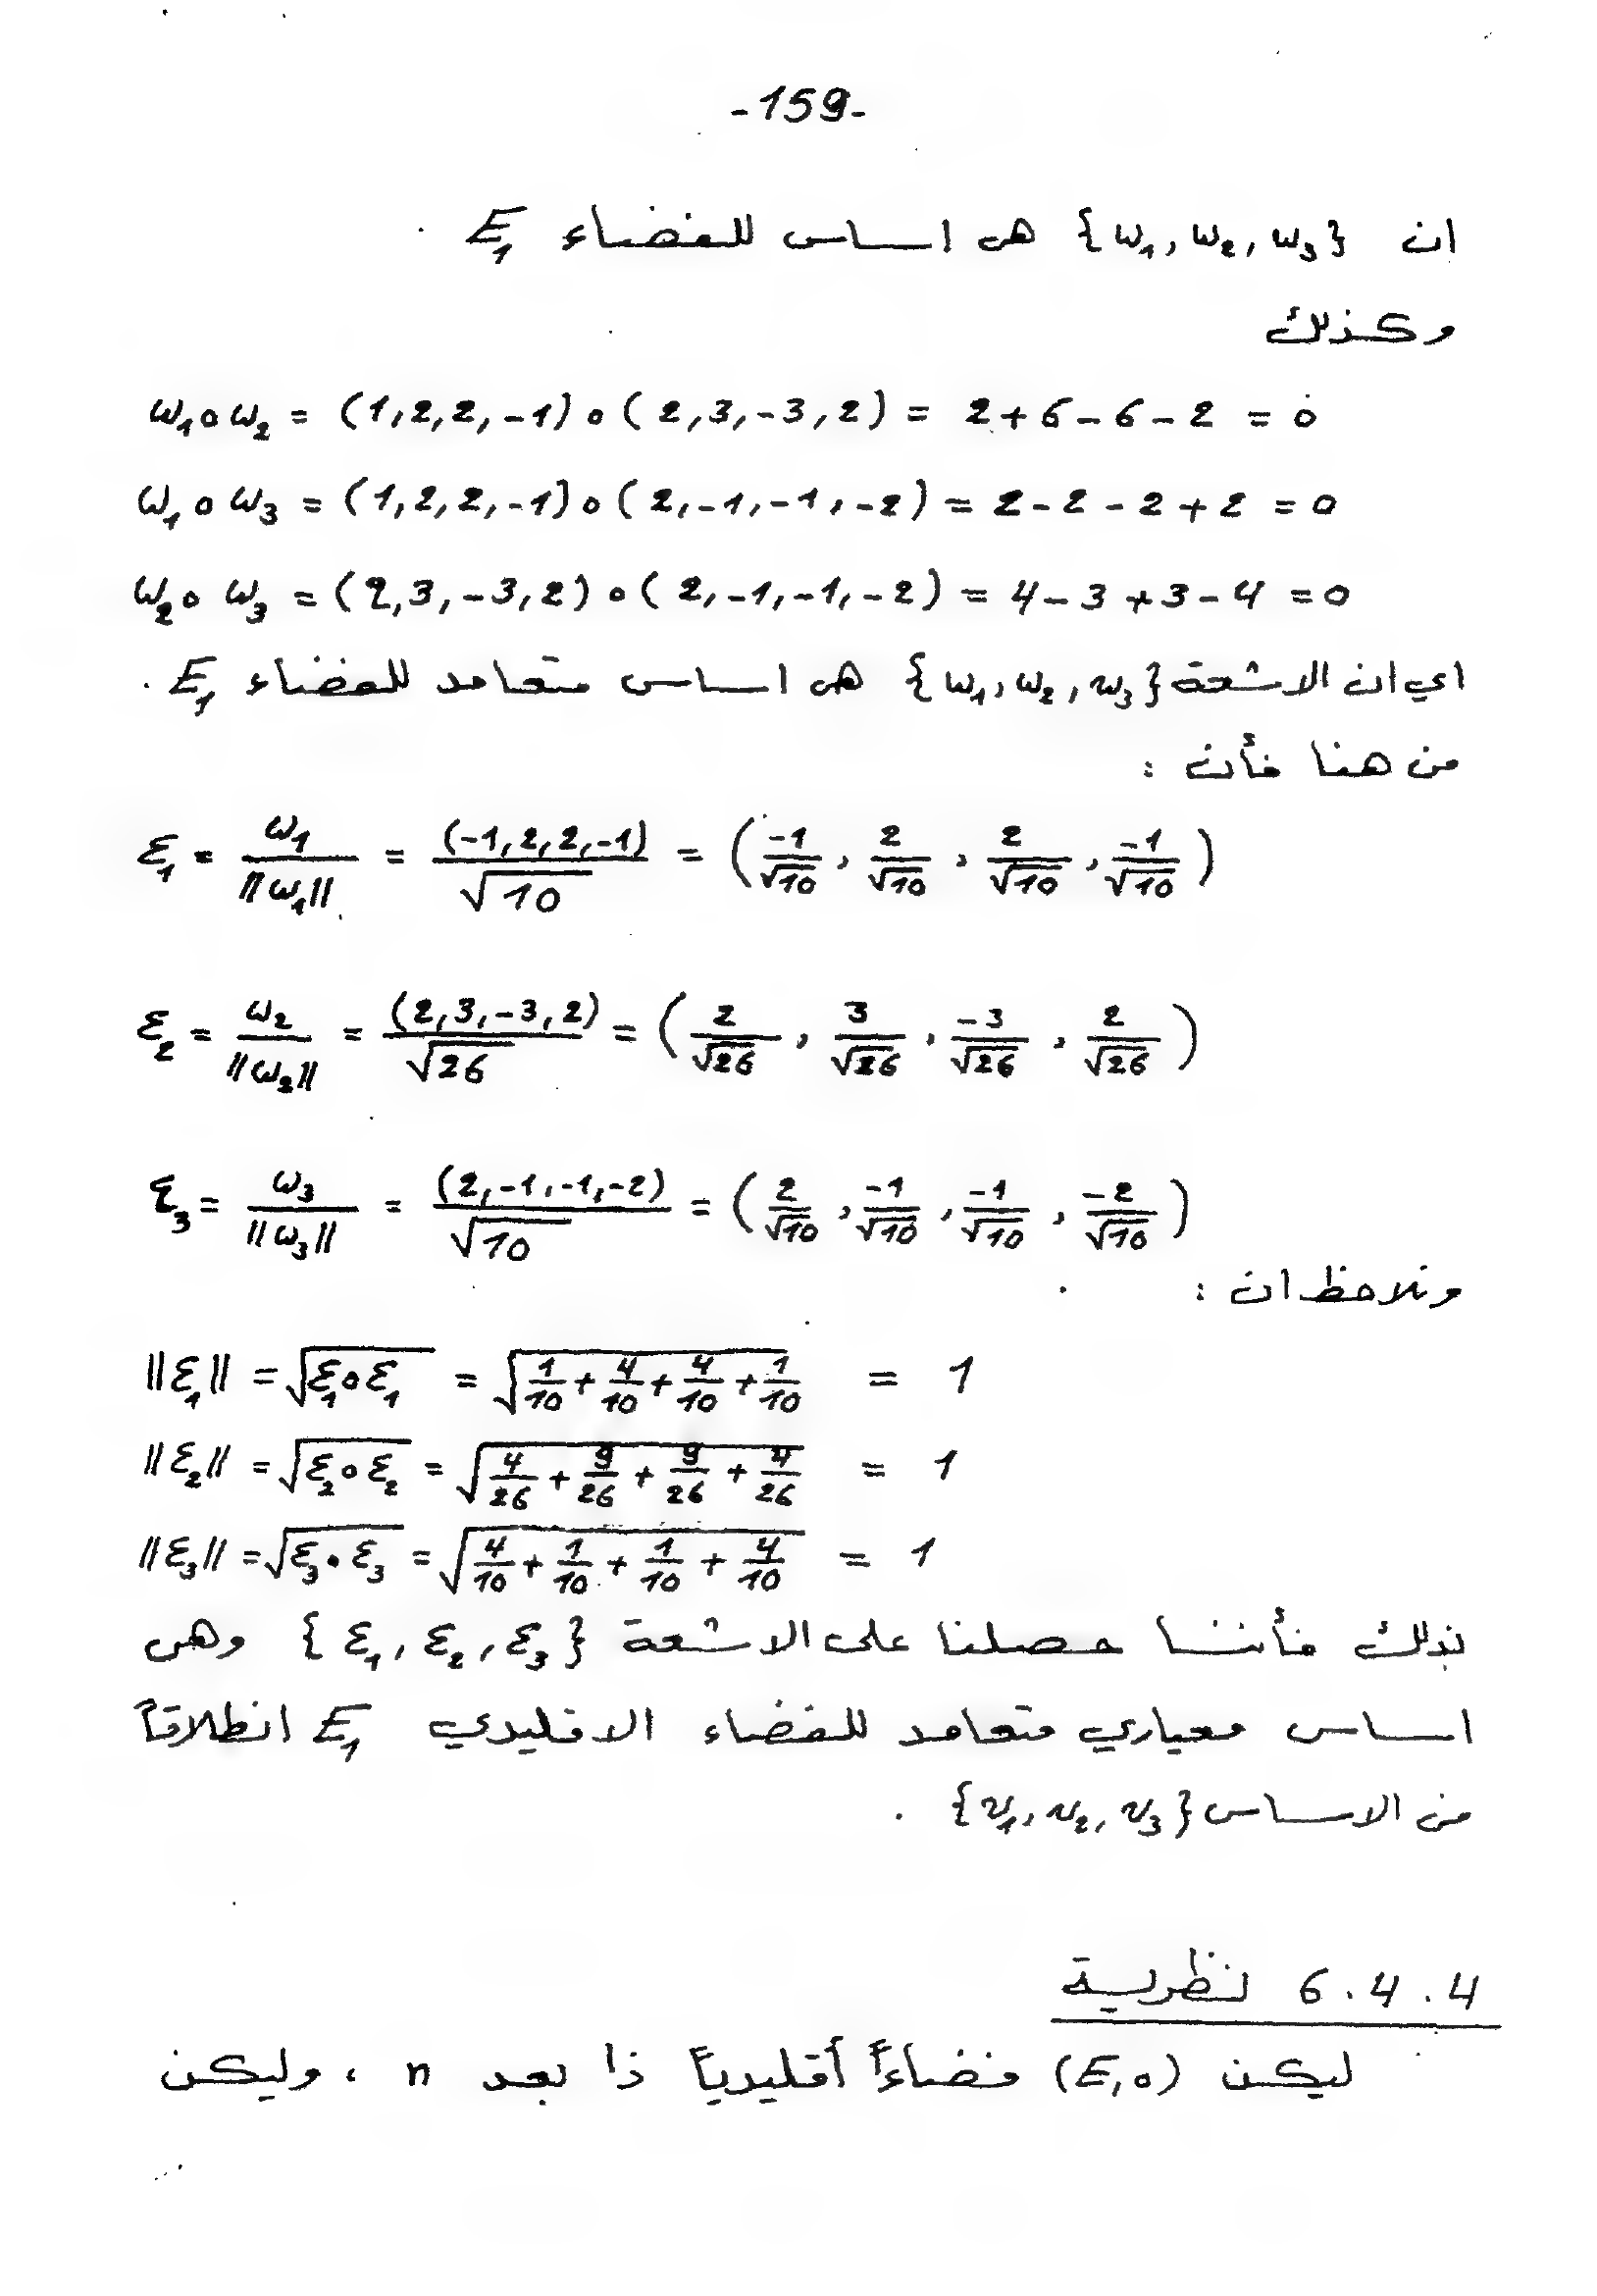 -159-
ان {ω₁, ω₂, ω₃} هي اساس للفضاء E₁ .
وكذلك
ω₁∘ω₂ = (1,2,2,-1)∘(2,3,-3,2) = 2+6-6-2 = 0
ω₁∘ω₃ = (1,2,2,-1)∘(2,-1,-1,-2) = 2-2-2+2 = 0
ω₂∘ω₃ = (2,3,-3,2)∘(2,-1,-1,-2) = 4-3+3-4 = 0
اي ان الاشعة {ω₁, ω₂, ω₃} هي اساس متعامد للفضاء E₁ .
من هنا فأن :
ε₁ = ω₁/‖ω₁‖ = (-1,2,2,-1)/√10 = (-1/√10, 2/√10, 2/√10, -1/√10)
ε₂ = ω₂/‖ω₂‖ = (2,3,-3,2)/√26 = (2/√26, 3/√26, -3/√26, 2/√26)
ε₃ = ω₃/‖ω₃‖ = (2,-1,-1,-2)/√10 = (2/√10, -1/√10, -1/√10, -2/√10)
ونلاحظ ان :
‖ε₁‖ = √(ε₁∘ε₁) = √(1/10 + 4/10 + 4/10 + 1/10) = 1
‖ε₂‖ = √(ε₂∘ε₂) = √(4/26 + 9/26 + 9/26 + 4/26) = 1
‖ε₃‖ = √(ε₃∘ε₃) = √(4/10 + 1/10 + 1/10 + 4/10) = 1
لذلك فأننا حصلنا على الاشعة {ε₁, ε₂, ε₃} وهي
اساس معياري متعامد للفضاء الاقليدي E₁ انطلاقاً
من الاساس {v₁, v₂, v₃} .
6.4.4 نظرية
ليكن (E,∘) فضاءاً أقليدياً ذا بعد n ، وليكن